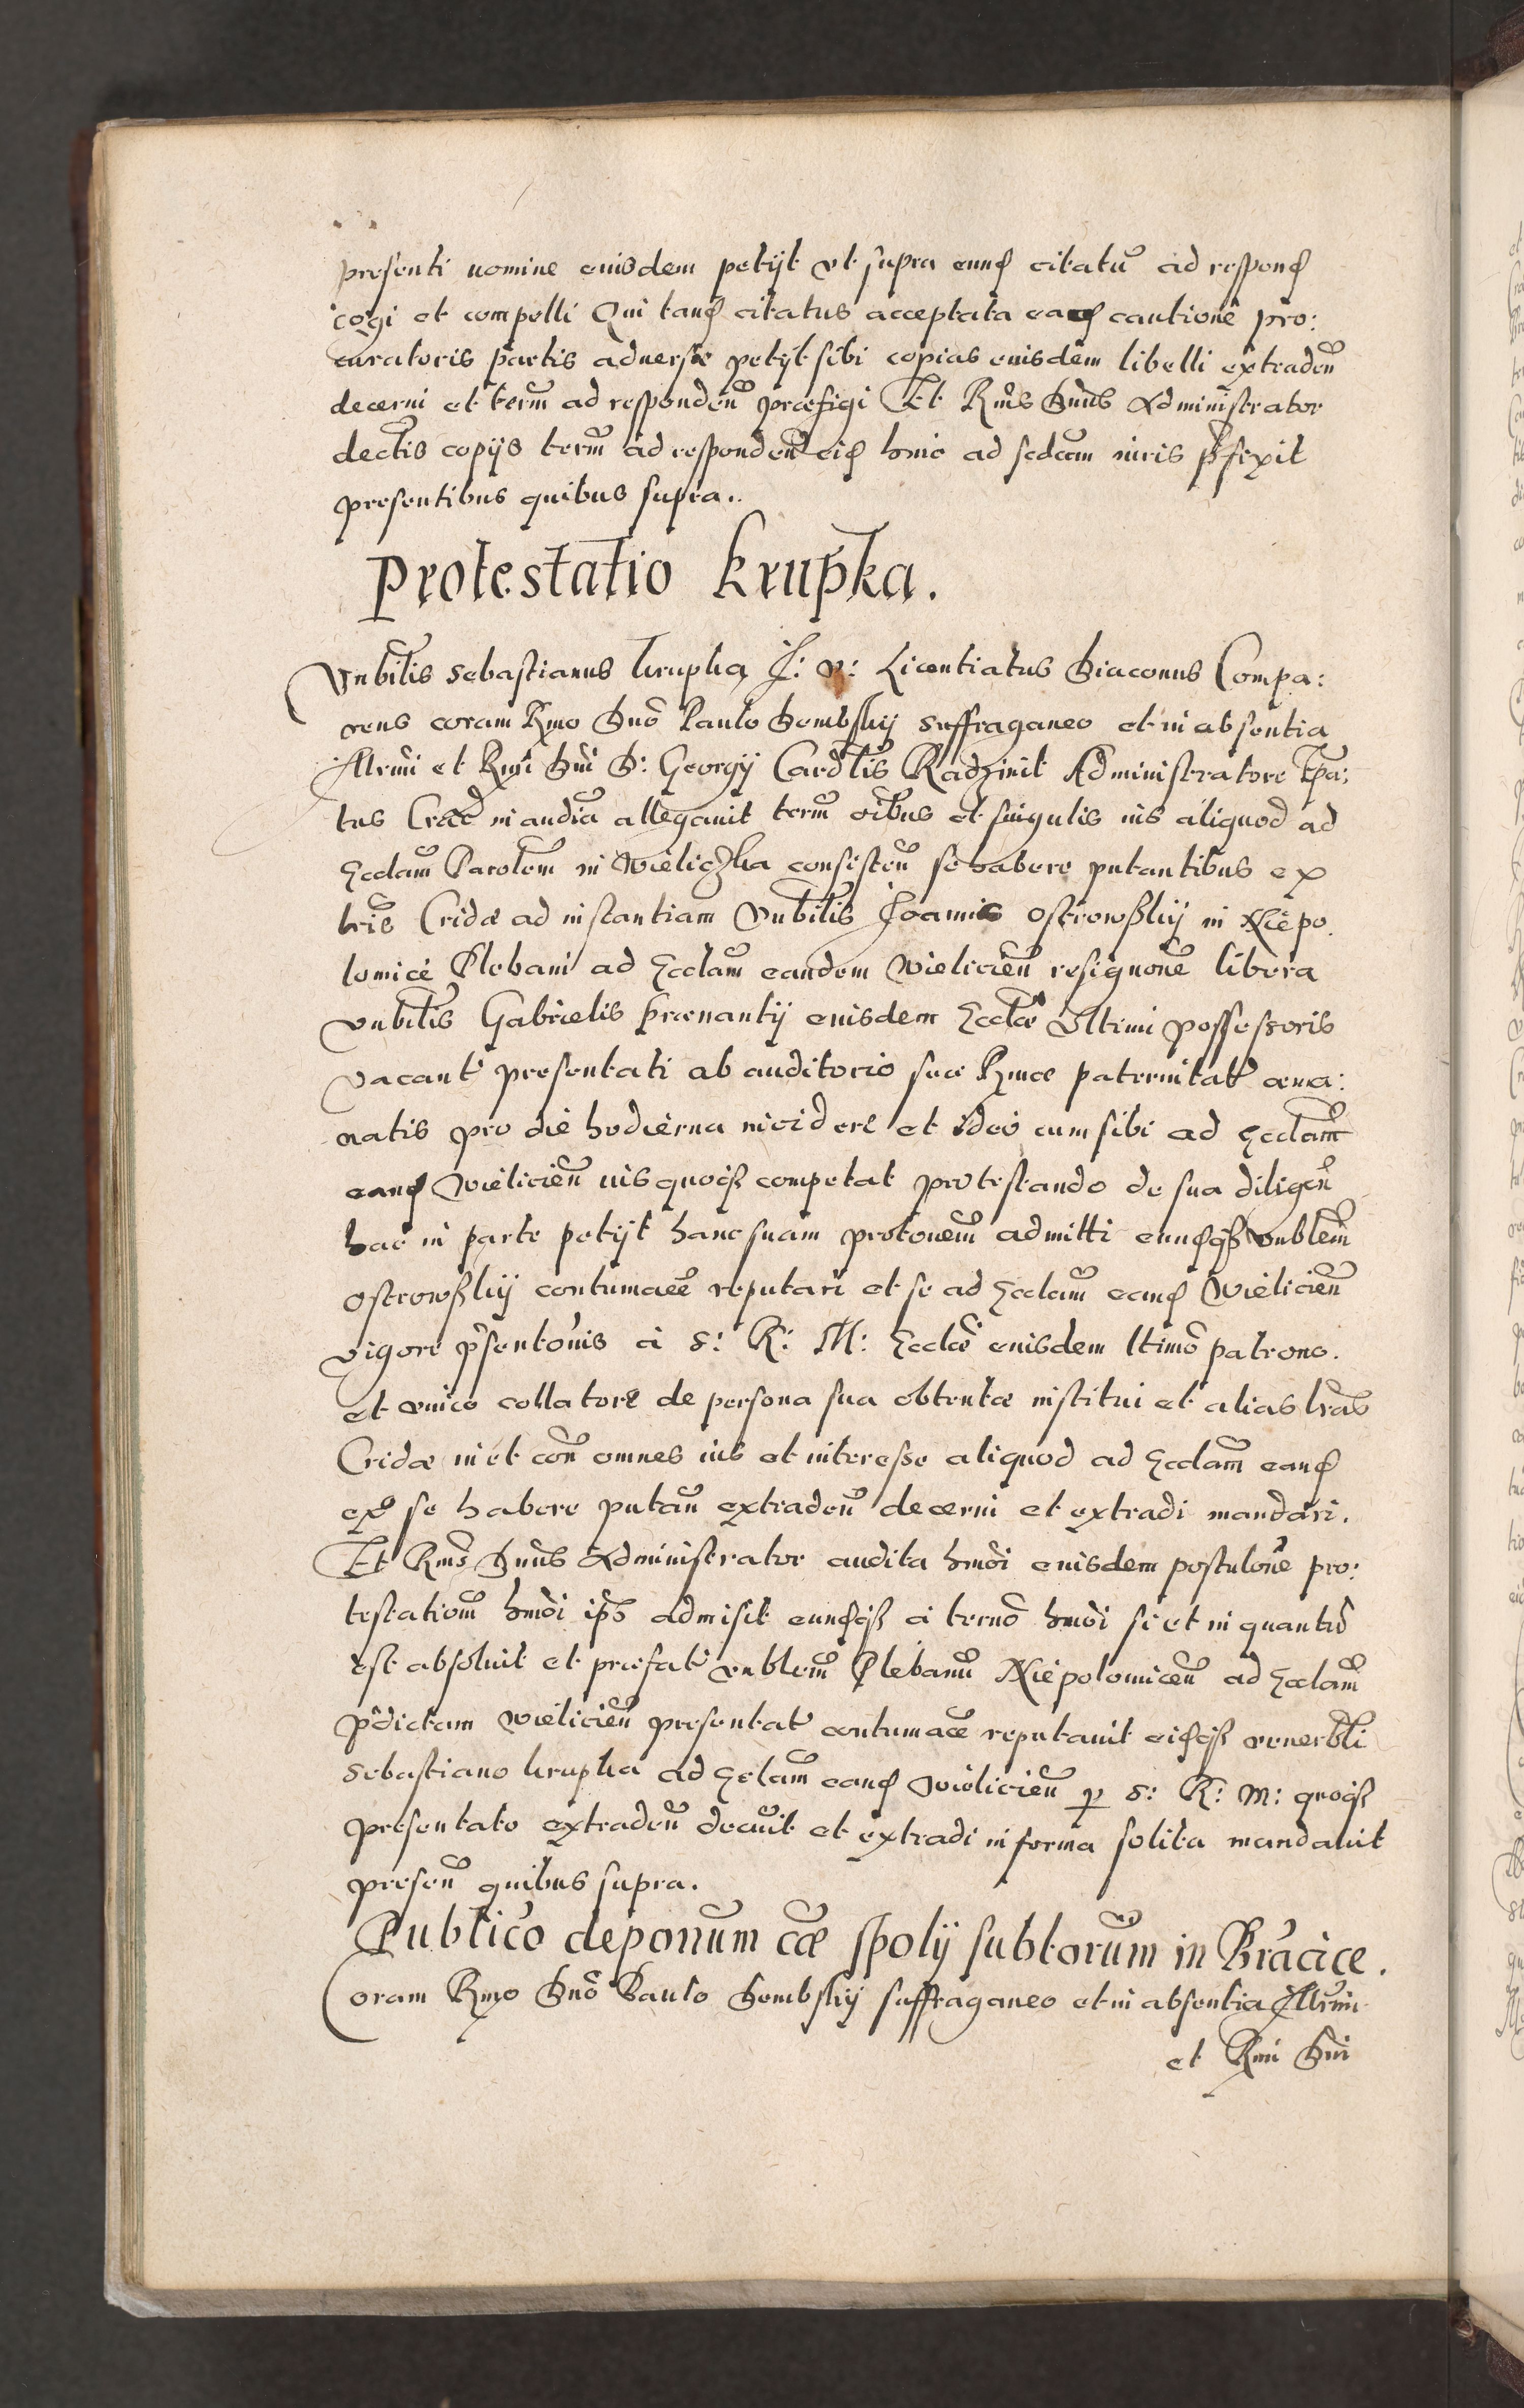 presenti nomine euisdem petijt vt supra eund citatū ad respond
cogi et compelli Qui tand citatus acceptata ead cautione pro:
curatoris partis aduersæ petijt sibi copias euisdem libelli extradeñ
decerni et termū ad respondeñ præfigi Et Rms Dnus Administrator
dectis copijs termū ad respondeñ eid hinc ad sedcam iuris pfixit
presentibus quibus supra..
Protestatio Krupka.
Vnbilis Sebastianus Krupka J: V: Licentiatus Diaconus Compa:
rens coram Rmo Dno Paulo Dembskij Suffraganeo et in absentia
Illrmi et Rmi Dni D: Georgij Cardlis Radziuil Administratore Epa:
tus Crac in audia allegauit termū oibus et singulis ius aliquod ad
Eccłam Parołem in Wieliczka consisteñ se habere putantibus ex
lris Cridæ ad instantiam Vnbilis Joannis Ostrowskij in Niepo
lomice Plebani ad Eccłam eandem Wielicieñ resignone libera
vnbilis Gabrielis Prænantij euisdem Ecclæ Vltimi possessoris
vacant presentati ab auditorio suæ Rmæ paternitat æma:
natis pro die hodierna incidere et ideo cum sibi ad Eccłam
eand Wielicieñ ius quoq competat protestando de sua diligeñ
hac in parte petijt hanc suam protonem admitti eundq vnblem
Ostrowskij contumacē reputari et se ad Eccłam eand Wielicieñ
vigore psentonis a S: R: M: Ecclæ euisdem ltimo patrono.
et vnico collatore de persona sua obtentæ institui et alias lras
Cridæ in et coñ omnes ius et interesse aliquod ad Eccłam eand
ex se habere putañ extradeñ decerni et extradi mandari.
Et Rms Dnus Administrator audita hmoi euisdem postulone pro:
testationem hmoi ips admisit eundq a termo hmoi si et in quantū
est absoluit et præfat vnblem Plebanū Niepolomiceñ ad Eccłam
pdictam Wielicieñ presentat contumacē reputauit eidq venerbli
Sebastiano Krupka ad Ecłam eand Wielicieñ p S: R: M: quoq
presentato extradeñ decreuit et extradi in forma solita mandauit
preseñ quibus supra.
Publico deponum cæ spolij subtorum in Bracice.
Coram Rmo Dno Paulo Dembskij suffraganeo et in absentia Illrmi
et Rmi Dni